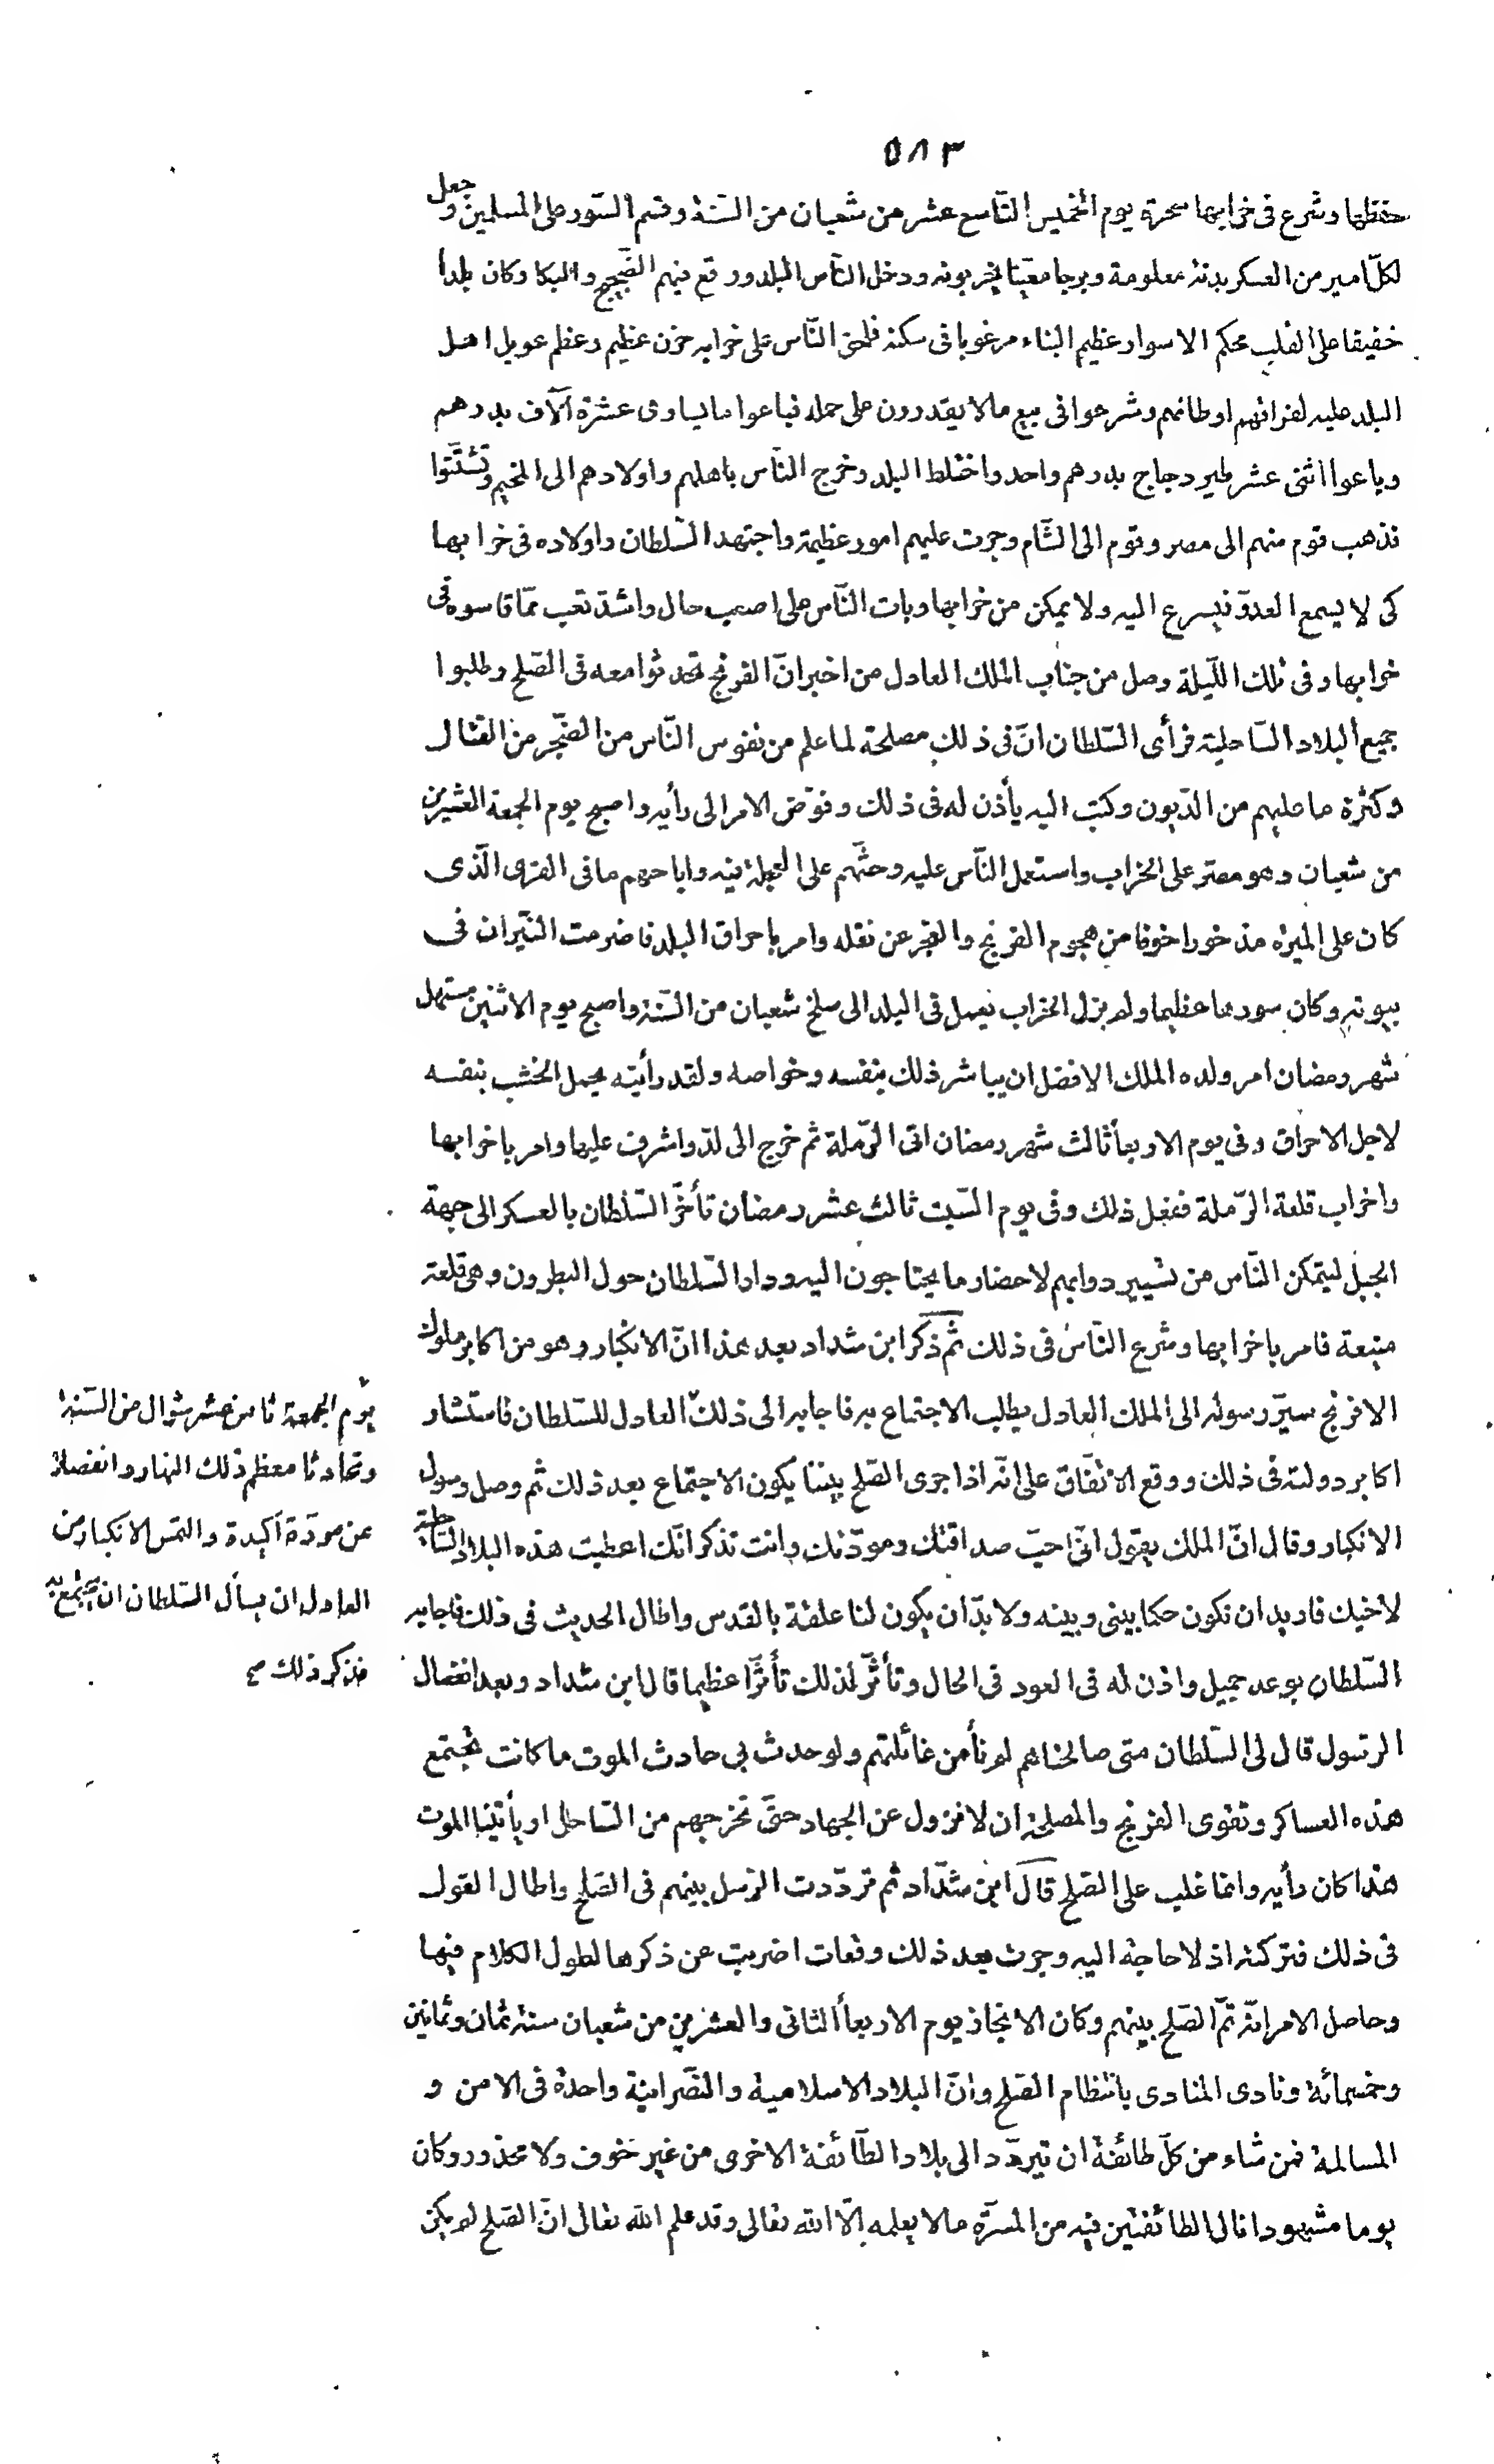 ٥٨٣
حفظها وشرع فى خرابها سحرة يوم الخميس التّاسع عشر من شعبان من السّنة وقسم السّور على المسلمين وجعل
لكلّ امير من العسكر بدنة معلومة وبرجا معيّنا يخربونه ودخل النّاس البلد ووقع فيهم الضّجيج والبكا وكان بلدا
خفيفا على القلب محكم الاسوار عظيم البناء مرغوبا فى سكنه فلحق النّاس على خرابه حزن عظيم وعظم عويل اهل
البلد عليه لفراقهم اوطانهم وشرعوا فى بيع ما لا يقدرون على حمله فباعوا ما يساوى عشرة آلاف بدرهم
وباعوا اثنى عشر طير دجاج بدرهم واحد واختلط البلد وخرج النّاس باهلهم واولادهم الى المخيم وتشتّتوا
فذهب قوم منهم الى مصر وقوم الى الشّام وجرت عليهم امور عظيمة واجتهد السّلطان واولاده فى خرابها
كى لا يسمع العدوّ فيسرع اليه ولا يمكن من خرابها وبات النّاس على اصعب حال واشدّ تعب ممّا قاسوه فى
خرابها وفى تلك اللّيلة وصل من جناب الملك العادل من اخبر انّ الفرنج تحدثوا معه فى الصّلح وطلبوا
جميع البلاد السّاحلية فرأى السّلطان انّ فى ذلك مصلحة لما علم من نفوس النّاس من الضّجر من القتال
وكثرة ما عليهم من الدّيون وكتب اليه يأذن له فى ذلك وفوّض الامر الى رأيه واصبح يوم الجمعة العشرين
من شعبان وهو مصرّ على الخراب واستعمل النّاس عليه وحثّهم على العجلة فيه واباحهم ما فى الهرى الّذى
كان على الميرة مذخورا خوفا من هجوم الفرنج والعجز عن نقله وامر باحراق البلد فاضرمت النّيران فى
بيوته وكان سورها عظيما ولم يزل الخراب يعمل فى البلد الى سلخ شعبان من السّنة واصبح يوم الاثنين مستهل
شهر رمضان امر ولده الملك الافضل ان يباشر ذلك بنفسه وخواصه ولقد رأيته يحمل الخشب بنفسه
لاجل الاحراق وفى يوم الاربعأ ثالث شهر رمضان اتى الرّملة ثم خرج الى لدّ واشرف عليها وامر باخرابها
واخراب قلعة الرّملة ففعل ذلك وفى يوم السّبت ثالث عشر رمضان تأخّر السّلطان بالعسكر الى جهة
الجبل ليتمكن النّاس من تسيير دوابهم لاحضار ما يحتاجون اليه ودار السّلطان حول النطرون وهى قلعة
منيعة فامر باخرابها وشرع النّاس فى ذلك ثم ذكر ابن شداد بعد هذا انّ الانكتار وهو من اكابر ملوك
الافرنج سيّر رسوله الى الملك العادل يطلب الاجتماع به فاجابه الى ذلك العادل للسّلطان فاستشار
اكابر دولته فى ذلك ووقع الاتّفاق على انّه اذا جرى الصّلح بيننا يكون الاجتماع بعد ذلك ثم وصل رسول
الانكتار وقال انّ الملك يقول انّى احبّ صداقتك ومودّتك وانت تذكر انّك اعطيت هذه البلاد السّاحلية
لاخيك فاريد ان تكون حكما بينى وبينه ولا بدّ ان يكون لنا علقة بالقدس واطال الحديث فى ذلك فاجابه
السّلطان بوعد جميل واذن له فى العود فى الحال وتأثّر لذلك تأثّرا عظيما قال ابن شداد وبعد انفصال
الرسول قال لى السّلطان متى صالحناهم لم نأمن غائلتهم ولو حدث بى حادث الموت ما كانت تجتمع
هذه العساكر وتقوى الفرنج والمصلحة ان لا نزول عن الجهاد حتّى نخرجهم من السّاحل او يأتينا الموت
هذا كان رأيه وانما غلب على الصّلح قال ابن شدّاد ثم تردّدت الرّسل بينهم فى الصّلح واطال القول
فى ذلك فتركته اذ لا حاجة اليه وجرت بعد ذلك وقعات اضربت عن ذكرها لطول الكلام فيها
وحاصل الامر انّه تمّ الصّلح بينهم وكان الانجاز يوم الاربعأ الثانى والعشرين من شعبان سنة ثمان وثمانين
وخمسمائة ونادى المنادى بانتظام الصّلح وانّ البلاد الاسلامية والنّصرانية واحدة فى الامن و
المسالمة فمن شاء من كلّ طائفة ان يتردّد الى بلاد الطّائفة الاخرى من غير خوف ولا محذور وكان
يوما مشهودا نال الطائفتين فيه من المسرّة ما لا يعلمه الّا الله تعالى وقد علم الله تعالى انّ الصّلح لم يكن
يوم الجمعة ثامن عشر شوال من السّنة
وتحادثا معظم ذلك النهار وانفصلا
عن مودّة اكيدة والتمس الانكتار من
العادل ان يسأل السّلطان ان يجتمع به
فذكر ذلك صح